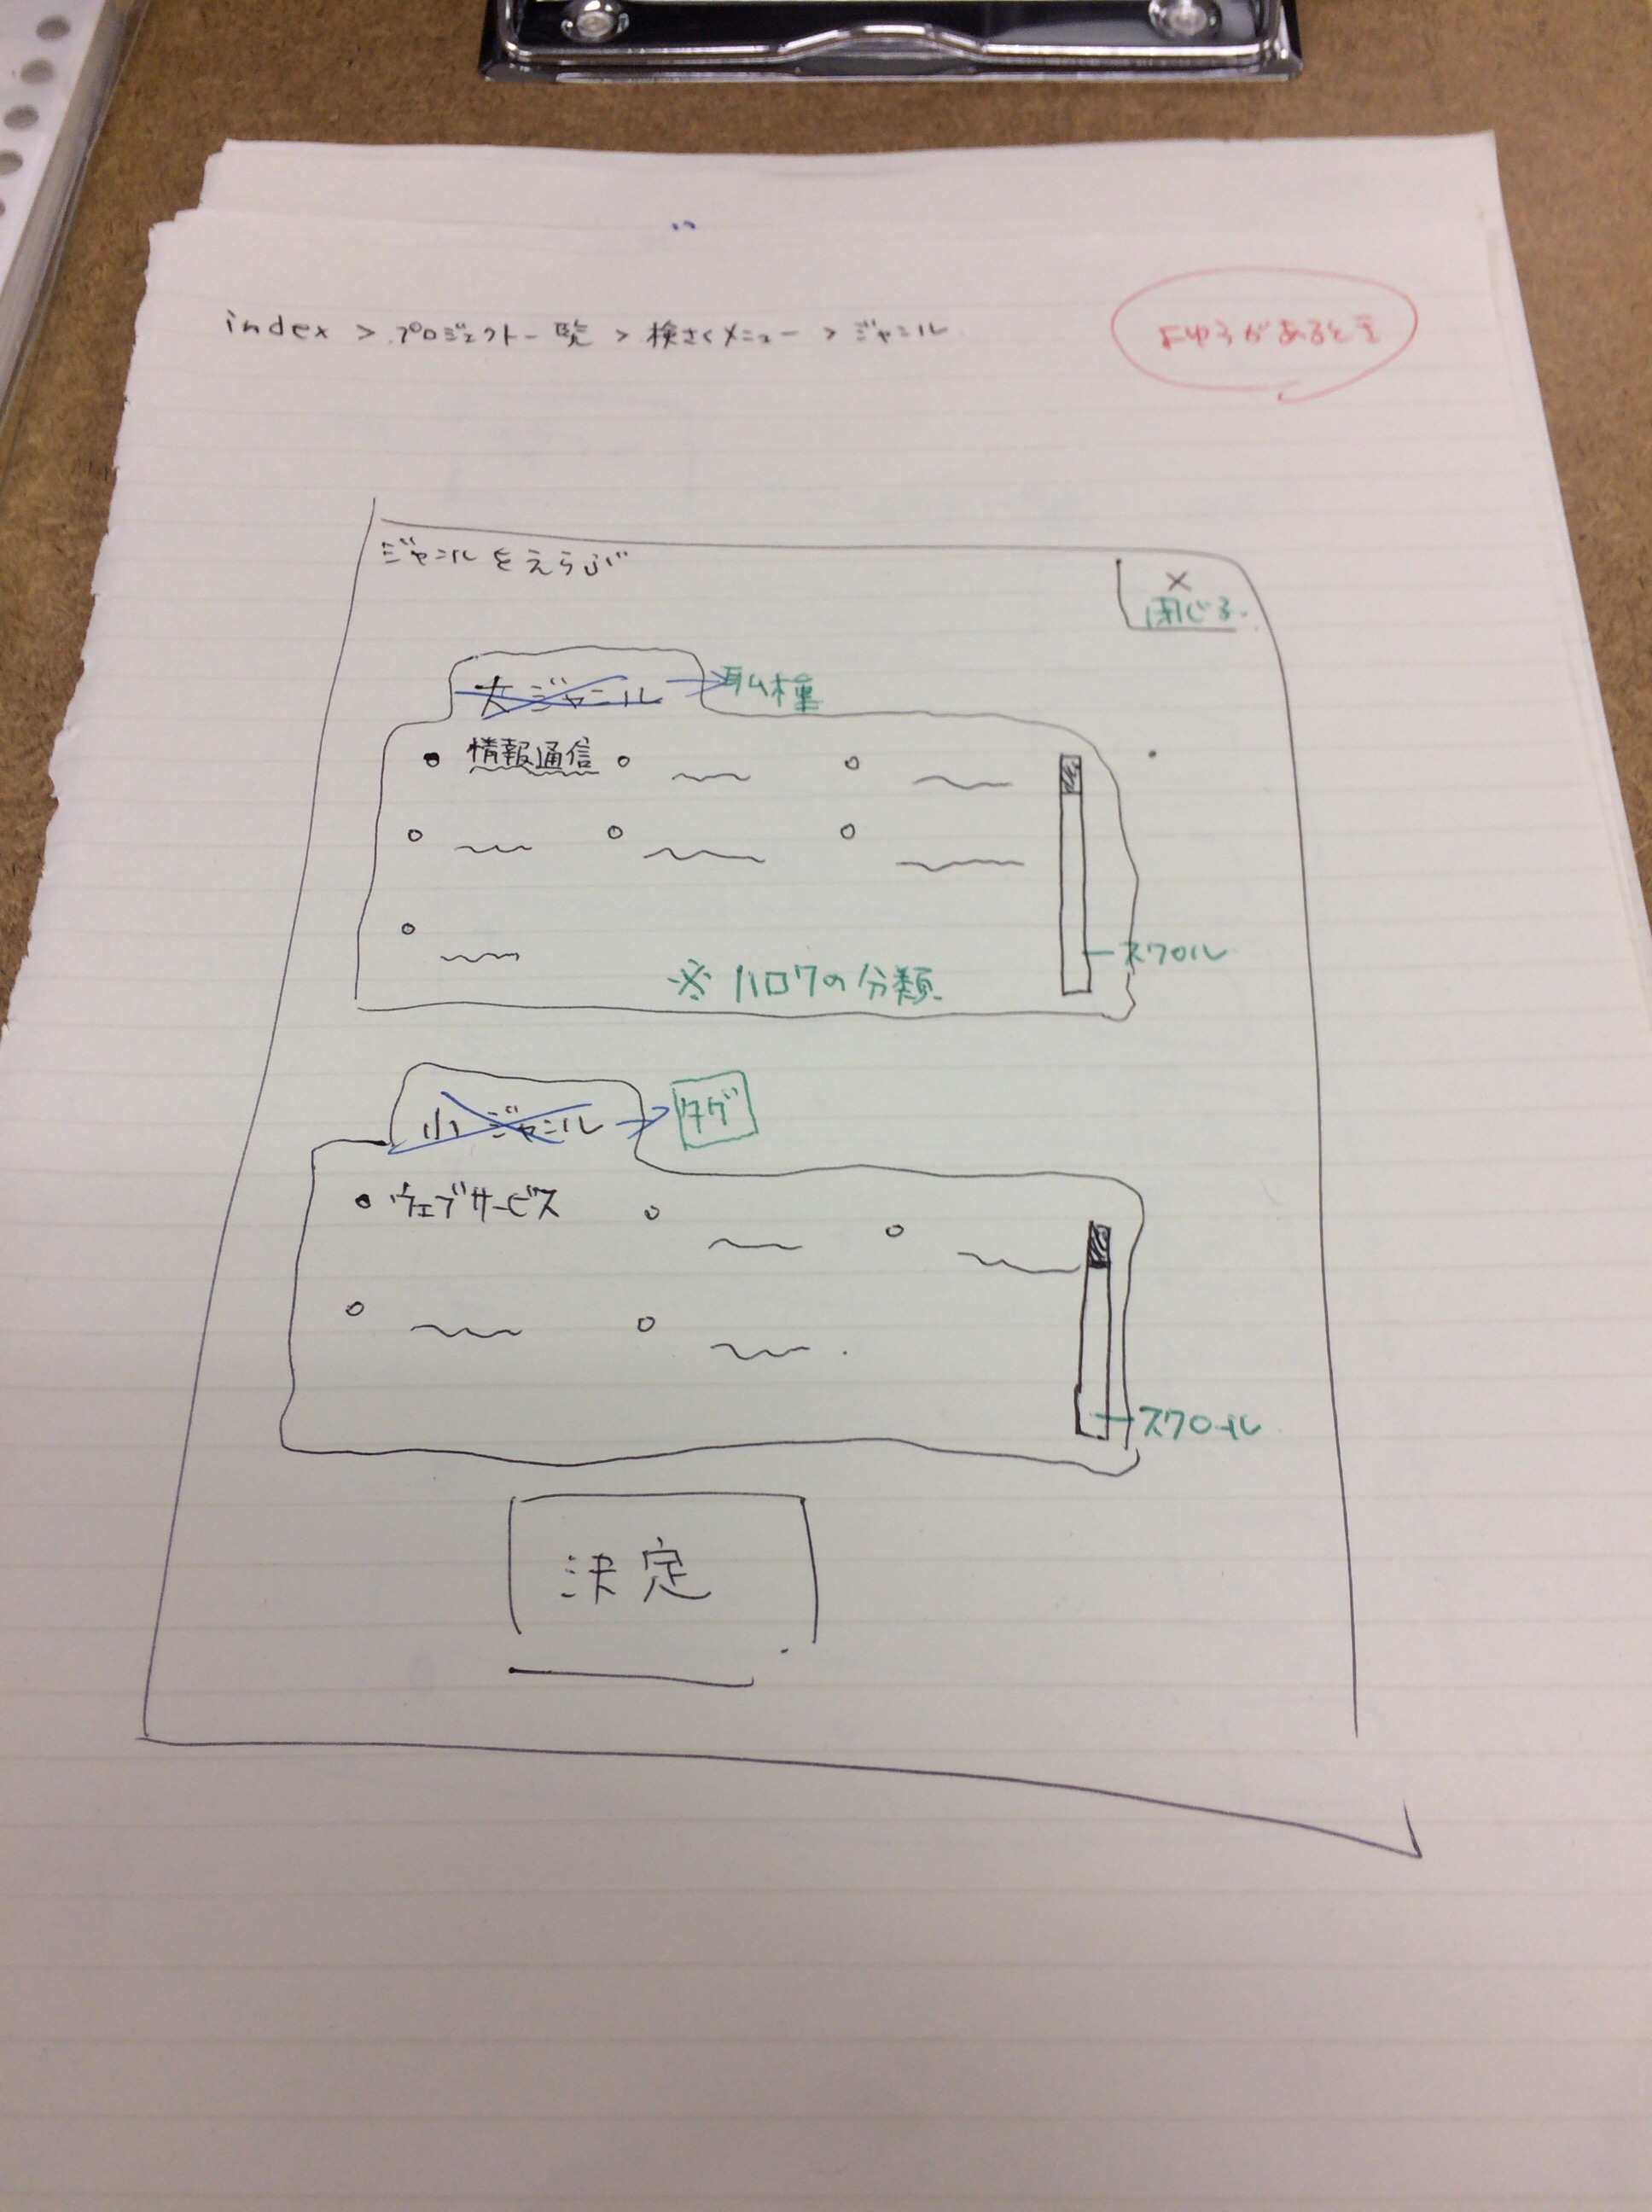 index > プロジェクト一覧 > 検さくメニュー > ジャンル
よゆうがあるとき
ジャンルをえらぶ
×
閉じる
大ジャンル → 職種
情報通信
スクロール
※ハロワの分類
小ジャンル → タグ
ウェブサービス
スクロール
決定